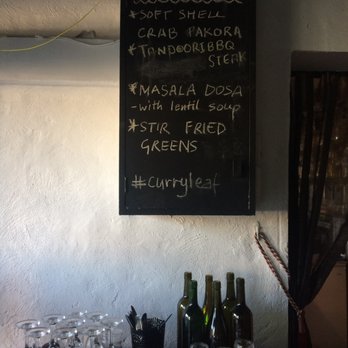 *SOFT SHELL
CRAB PAKORA
*TANDOORI BBQ
STEAK
*MASALA DOSA
-with lentil soup
*STIR FRIED
GREENS
#curryleaf